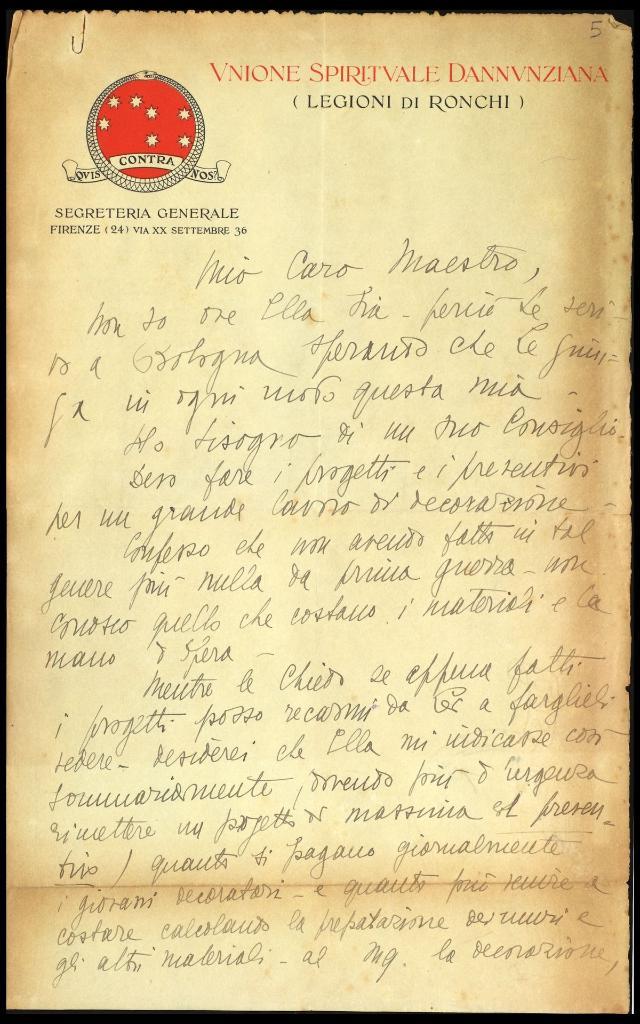 5
VNIONE SPIRITVALE DANNVNZIANA
( LEGIONI DI RONCHI )
CONTRA
QVIS NOS?
SEGRETERIA GENERALE
FIRENZE (24) VIA XX SETTEMBRE 36
Mio Caro Maestro,
Non so ove Ella sia - perciò Le scri-
vo a Bologna sperando che Le giun-
ga in ogni modo questa mia -
Ho bisogno di un suo Consiglio.
Devo fare i progetti e i preventivi
per un grande lavoro di decorazione -
Confesso che non avendo fatto in tal
genere più nulla da prima guerra - non
conosco quello che costano i materiali e la
mano d'opera -
Mentre le chiedo se appena fatti
i progetti posso recarmi da Lei a farglieli
vedere - desiderei che Ella mi indicasse così
sommariamente, dovendo più d'urgenza
rimettere un progetto di massima ed preven-
tivo) quanto si pagano giornalmente
i giovani decoratori - e quanto può venire a
costare calcolando la preparazione dei muri e
gli altri materiali - al mq. la decorazione,